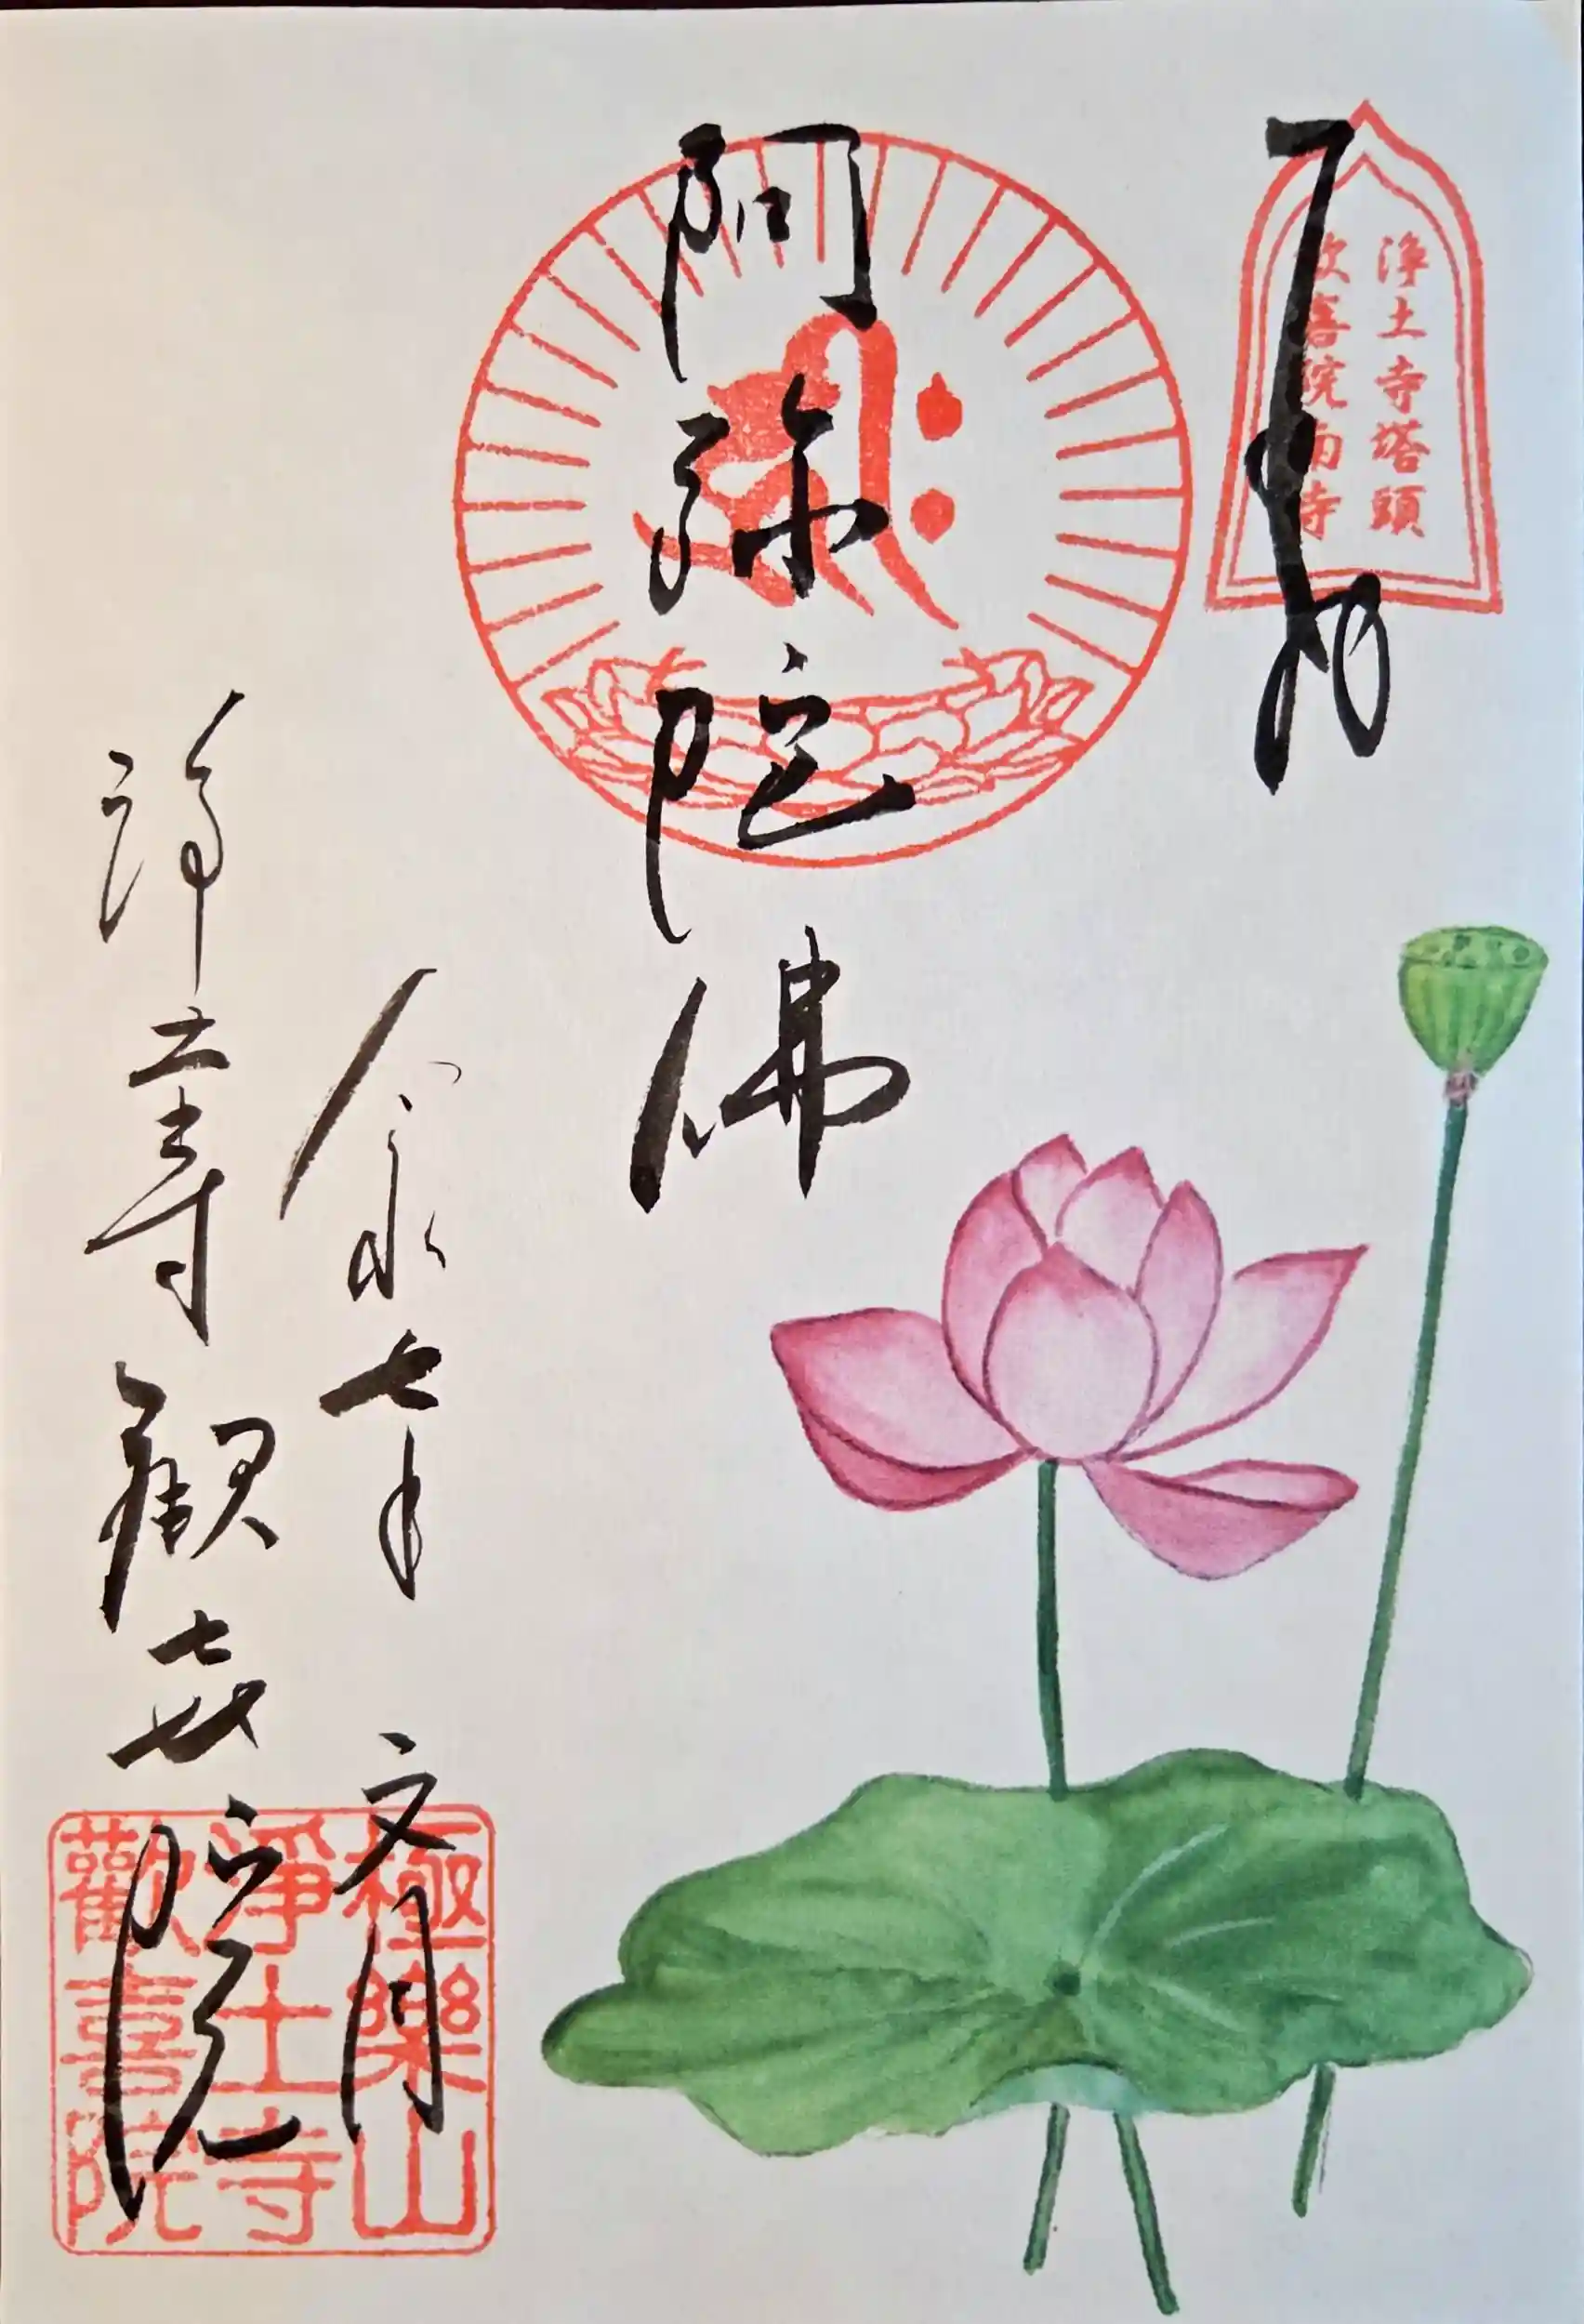 浄土寺塔頭
歓喜院南寺
阿弥陀佛
令和七年 文月
浄土寺 歓喜院
極樂山
淨土寺
歡喜院